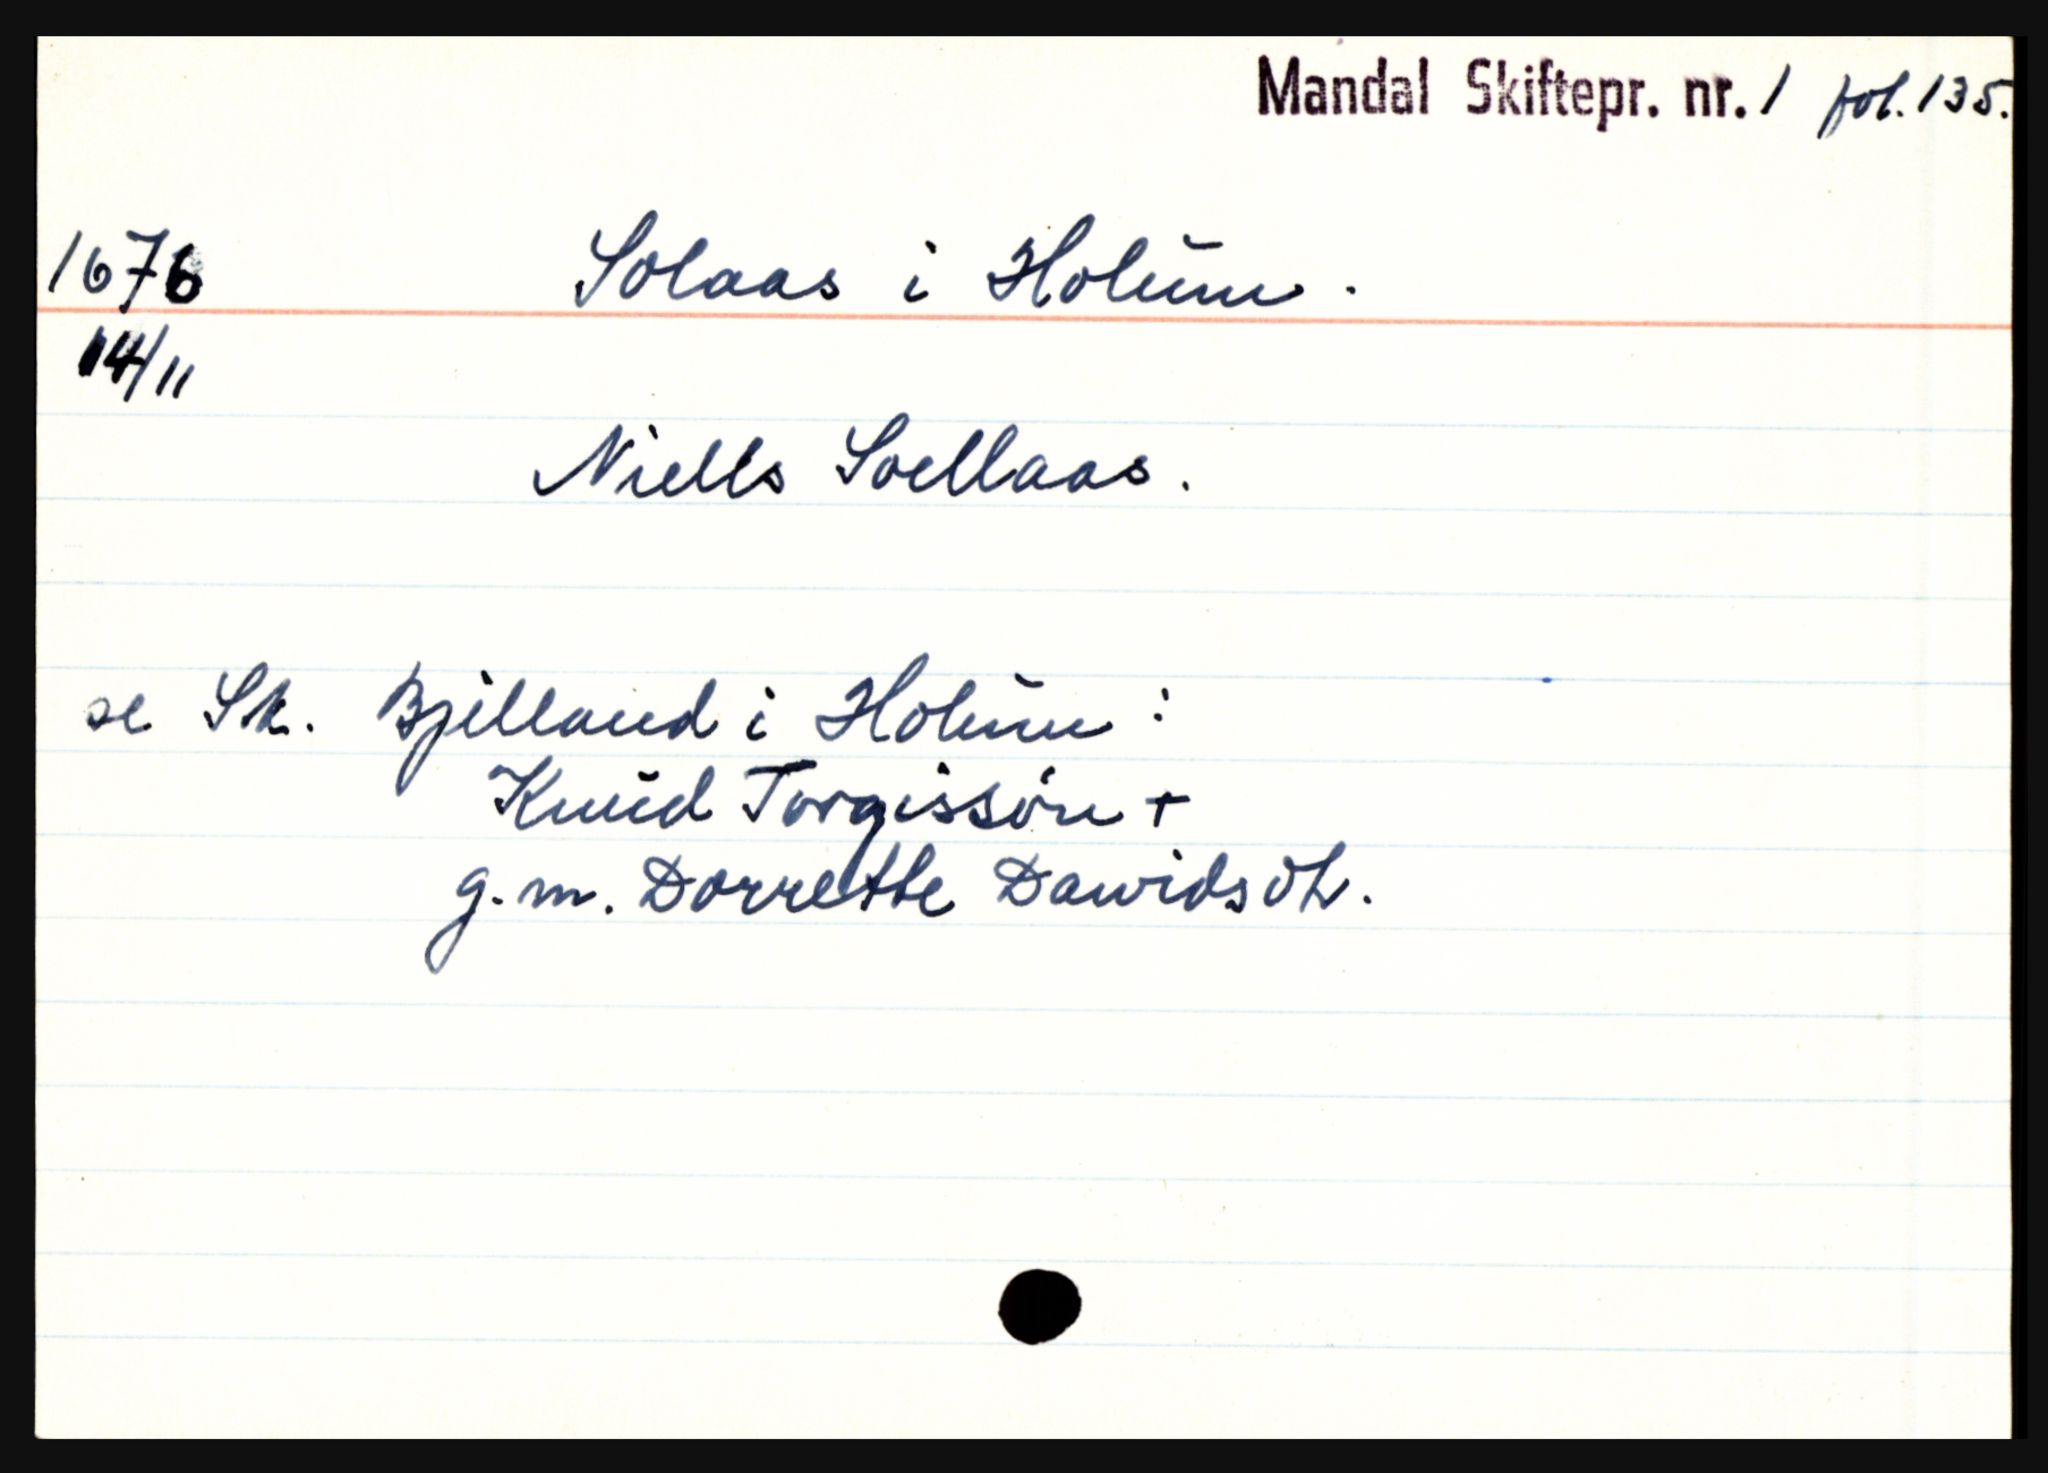 Mandal Skiftepr. nr. 1 fol. 135.
1676 Solaas i Holum.
14/11
Niells Soellaas.
se Sk. Bjilland i Holum:
Knud Torgissøn +
g.m. Dorrethe Dawidsdt.